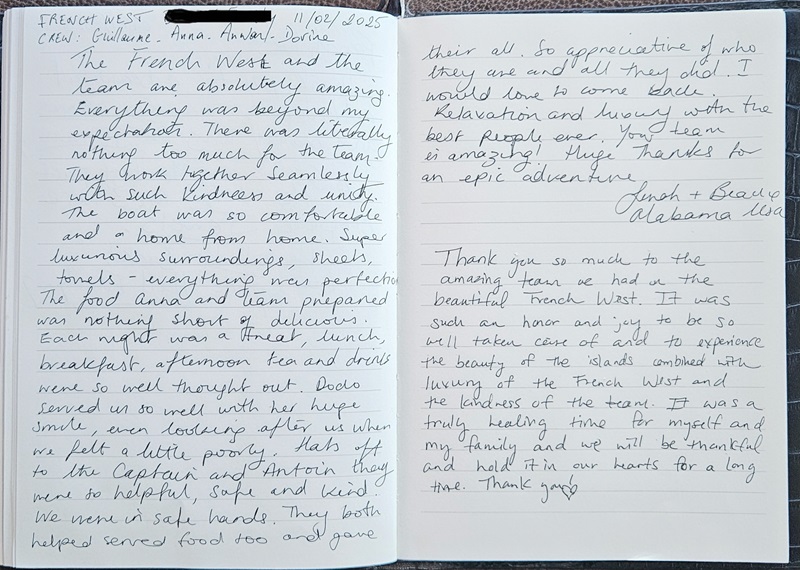 FRENCH WEST 11/02/2025
CREW: Guillaume - Anna - Anwar - Dorine
The French West and the
team are absolutely amazing.
Everything was beyond my
expectation. There was literally
nothing too much for the team.
They work together seamlessly
with such kindness and unity.
The boat was so comfortable
and a home from home. Super
luxurious surroundings, sheets,
towels - everything was perfection
The food Anna and team prepared
was nothing short of delicious.
Each night was a treat, lunch,
breakfast, afternoon tea and drinks
were so well thought out. Dodo
served us so well with her huge
smile, even looking after us when
we felt a little poorly. Hats off
to the Captain and Antoin they
were so helpful, safe and kind.
We were in safe hands. They both
helped served food too and gave
their all. So appreciative of who
they are and all they did. I
would love to come back.
Relaxation and luxury with the
best people ever. Your team
is amazing! Huge Thanks for
an epic adventure
+
Alabama USA
Thank you so much to the
amazing team we had on the
beautiful French West. It was
such an honor and joy to be so
well taken care of and to experience
the beauty of the islands combined with
luxury of the French West and
the kindness of the team. It was a
truly healing time for myself and
my family and we will be thankful
and hold it in our hearts for a long
time. Thank you